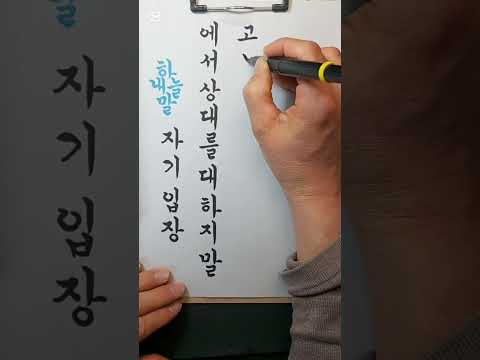 하늘
내말
자기입장
에서상대를대하지말
고